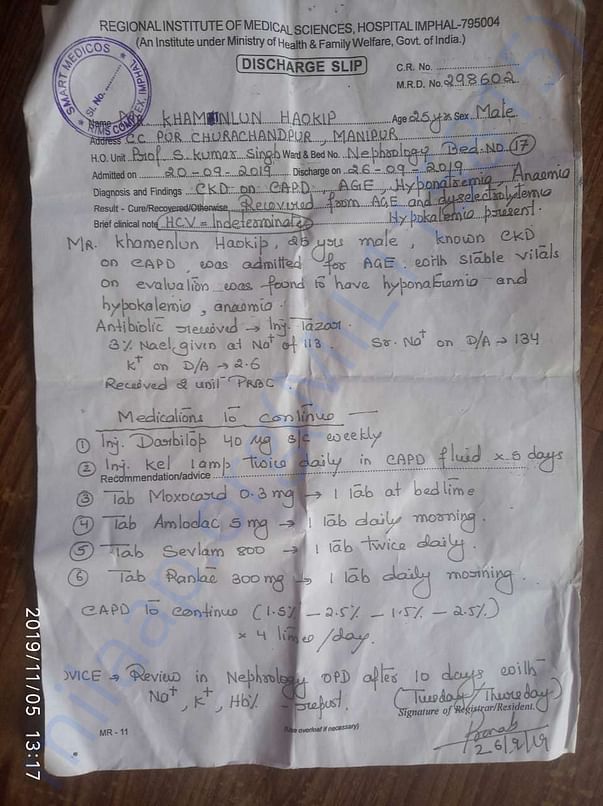 REGIONAL INSTITUTE OF MEDICAL SCIENCES, HOSPITAL IMPHAL-795004
(An Institute under Ministry of Health & Family Welfare, Govt. of India.)
DISCHARGE SLIP
C.R. No.
M.R.D. No. 298602
SMART MEDICOS
SL No.
RIMS COMPLEX, IMPHAL
Name KHAMENLUN HAOKIP Age 25 yrs Sex Male
Address CC PUR CHURACHANDPUR, MANIPUR
H.O. Unit Prof. S. Kumar Singh Ward & Bed No. Nephrology Bed. NO. 17
Admitted on 20-09-2019 Discharge on 26-09-2019
Diagnosis and Findings CKD on CAPD, AGE, Hyponatremia, Anaemia
Result - Cure/Recovered/Otherwise Recovered from AGE and dyselectrolytemia
Brief clinical note HCV = Indeterminate Hypokalemia present.
MR. Khamenlun Haokip, 25 yrs male, known CKD
on CAPD, was admitted for AGE with stable vitals
on evaluation was found to have hyponatremia and
hypokalemia, anaemia.
Antibiotic received → Inj. Tazar.
3% Nacl given at Na+ of 113. Sr. Na+ on D/A → 134
K+ on D/A → 2.6
Received 2 unit PRBC.
Medications To continue
① Inj. Darbitop 40 µg s/c weekly
② Inj. Kcl 1 amp twice daily in CAPD fluid x 5 days
Recommendation/advice
③ Tab Moxocard 0.3 mg → 1 tab at bedtime
④ Tab Amlodac 5 mg → 1 tab daily morning.
⑤ Tab Sevlam 800 → 1 tab twice daily.
⑥ Tab Rantac 300 mg → 1 tab daily morning.
CAPD To continue (1.5% - 2.5% - 1.5% - 2.5%)
x 4 times/day.
DVICE → Review in Nephrology OPD after 10 days with
Na+, K+, Hb% - report. (Tuesday/Thursday)
Signature of Registrar/Resident.
MR - 11
(Use overleaf if necessary)
26/9/19
2019/11/05 13:17